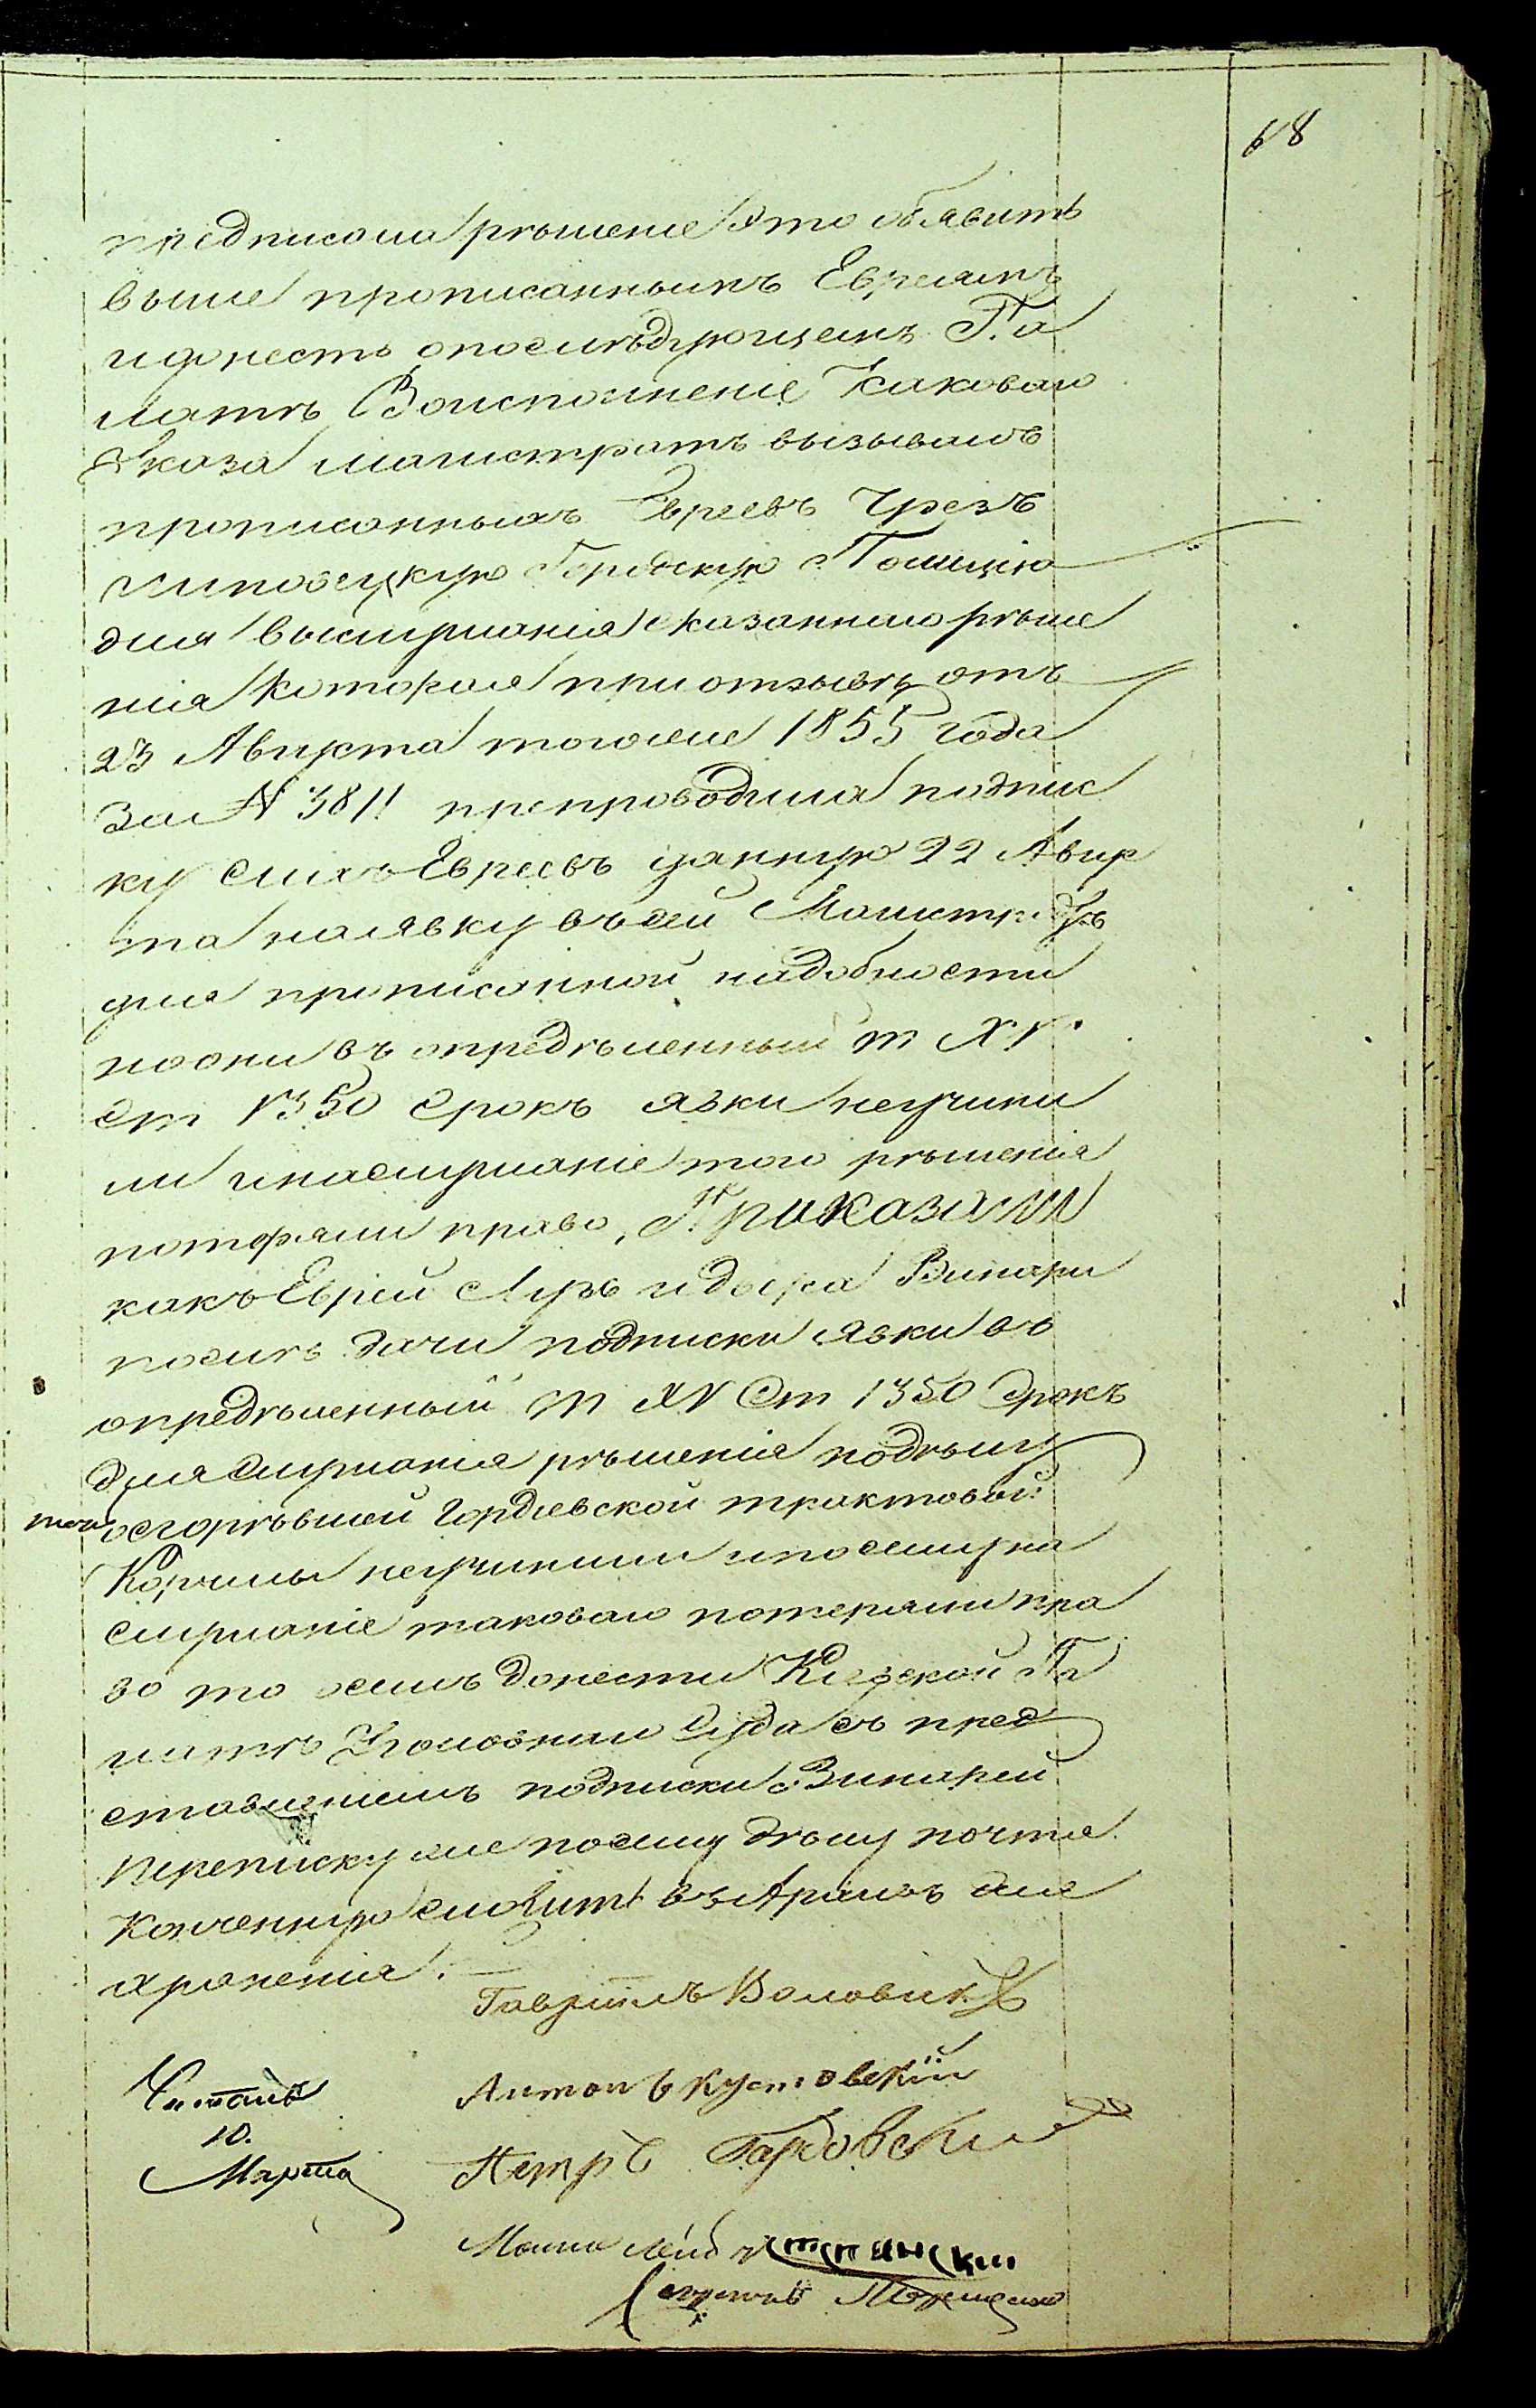 68
предписала рѣшеніе это объявить
выше прописаннымъ Евреямъ
и донесть опослѣдующемъ Па
латѣ Воисполненіе Каковаго
Указа Магистратъ вызывалъ
прописанныхъ Евреевъ Чрезъ
Липовецкую Городскую Полицію
для выслушанія сказаннаго рѣше
нія Которая при отзывѣ отъ
23 Августа тогоже 1855 года
За № 3811 препроводила подпис
ку сихъ Евреевъ данную 22 Авгус
та на явку въ сей Магистратъ
для прописанной надобности
но они въ опредѣленный т XV
ст 1350 срокъ явки неучини
ли и наслушаніе того рѣшенія
потеряли право, Приказали
какъ Евреи и Винари
послѣ дачи подписки явки въ
опредѣленный т XV Ст 1350 Срокъ
для слушанія рѣшенія подѣлу
осгорѣвшей Гордіевской трактовой
Корчмы неучинили и посему на
слушаніе таковаго потеряли пра
во то осемъ донести Кіевской Па
латѣ Уголовнаго Суда съ пред
ставленіемъ подписки Винарей
переписку же посему дѣлу почтя
Конченную сложить въ Архивъ для
храненія. —
Гавріилъ Воловик
Читалъ Антонъ Кустовскій
10.
Марта Петръ
Мошко Лейб
Секретарь